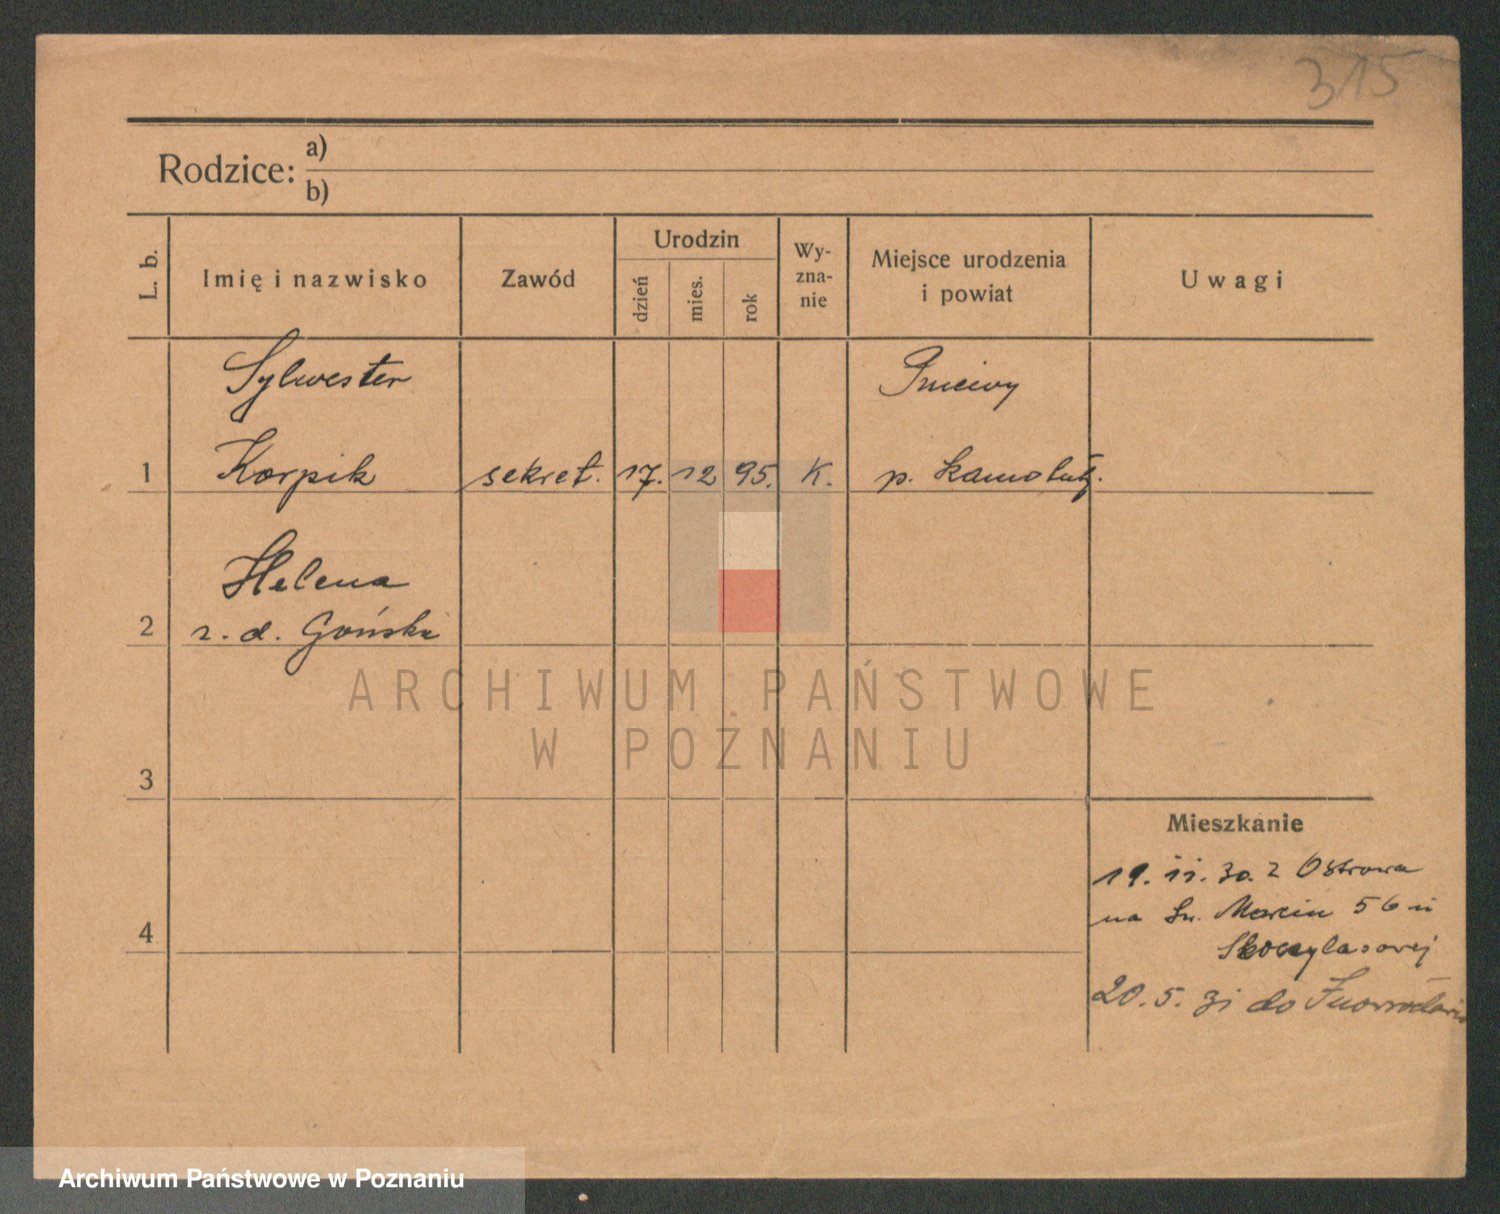 315
Rodzice: a)
b)
L. b.
Imię i nazwisko
Zawód
Urodzin
dzień
mies.
rok
Wy-
zna-
nie
Miejsce urodzenia
i powiat
Uwagi
Sylwester
1 Korpik sekret. 17. 12 95. K.
p.
Helena
2 z. d. Gońska
3
4
Mieszkanie
19. 11. 30. z Ostrowa
na Św. Marcin 56 u
20. 5. 31 do
ARCHIWUM PAŃSTWOWE
W POZNANIU
Archiwum Państwowe w Poznaniu